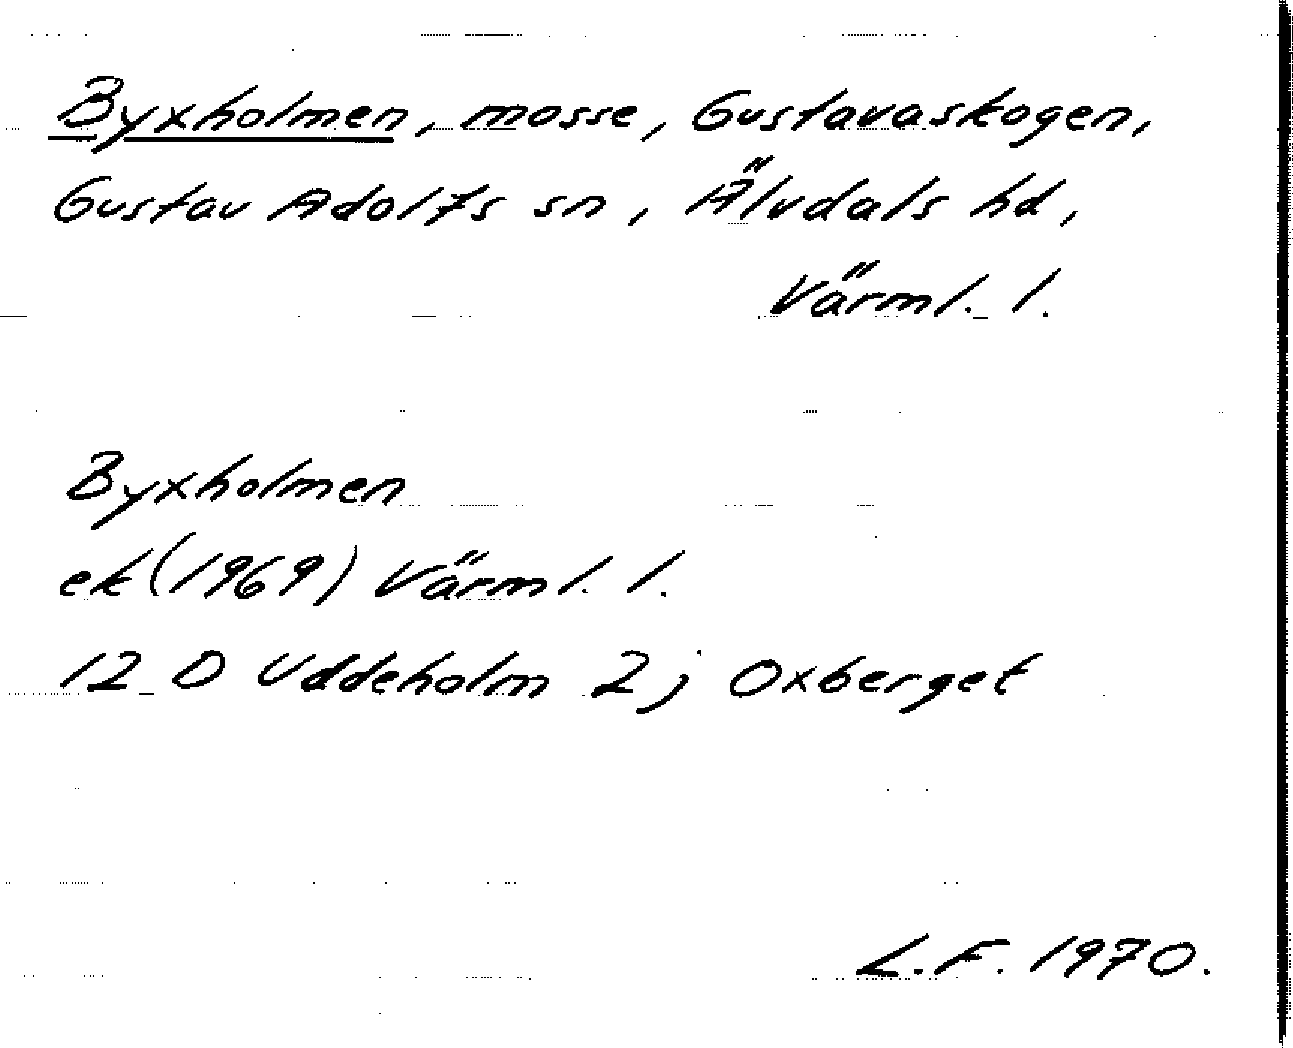 Byxholmen, mosse, Gustavaskogen,
Gustav Adolfs sn, Älvdals hd,
Värml. l.
Byxholmen
ek (1969) Värml. l.
12 D Uddeholm 2j Oxberget
L.F. 1970.